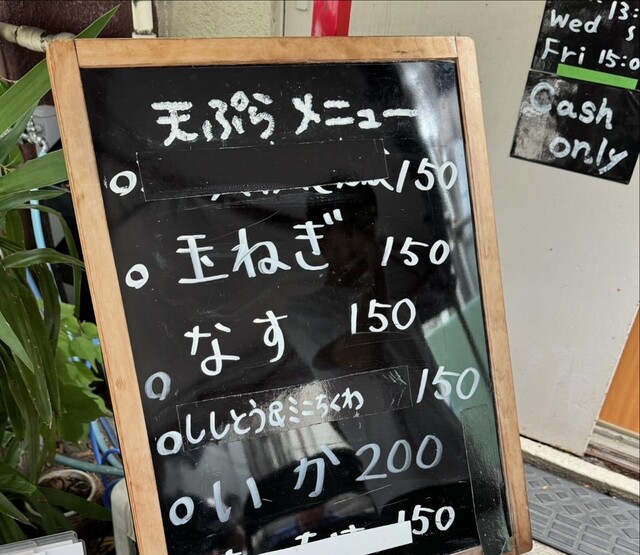 天ぷら メニュー
○ 150
○ 玉ねぎ 150
○ なす 150
○ ししとう&ミニちくわ 150
○ いか 200
150
13:
Wed S
Fri 15:0
Cash
only